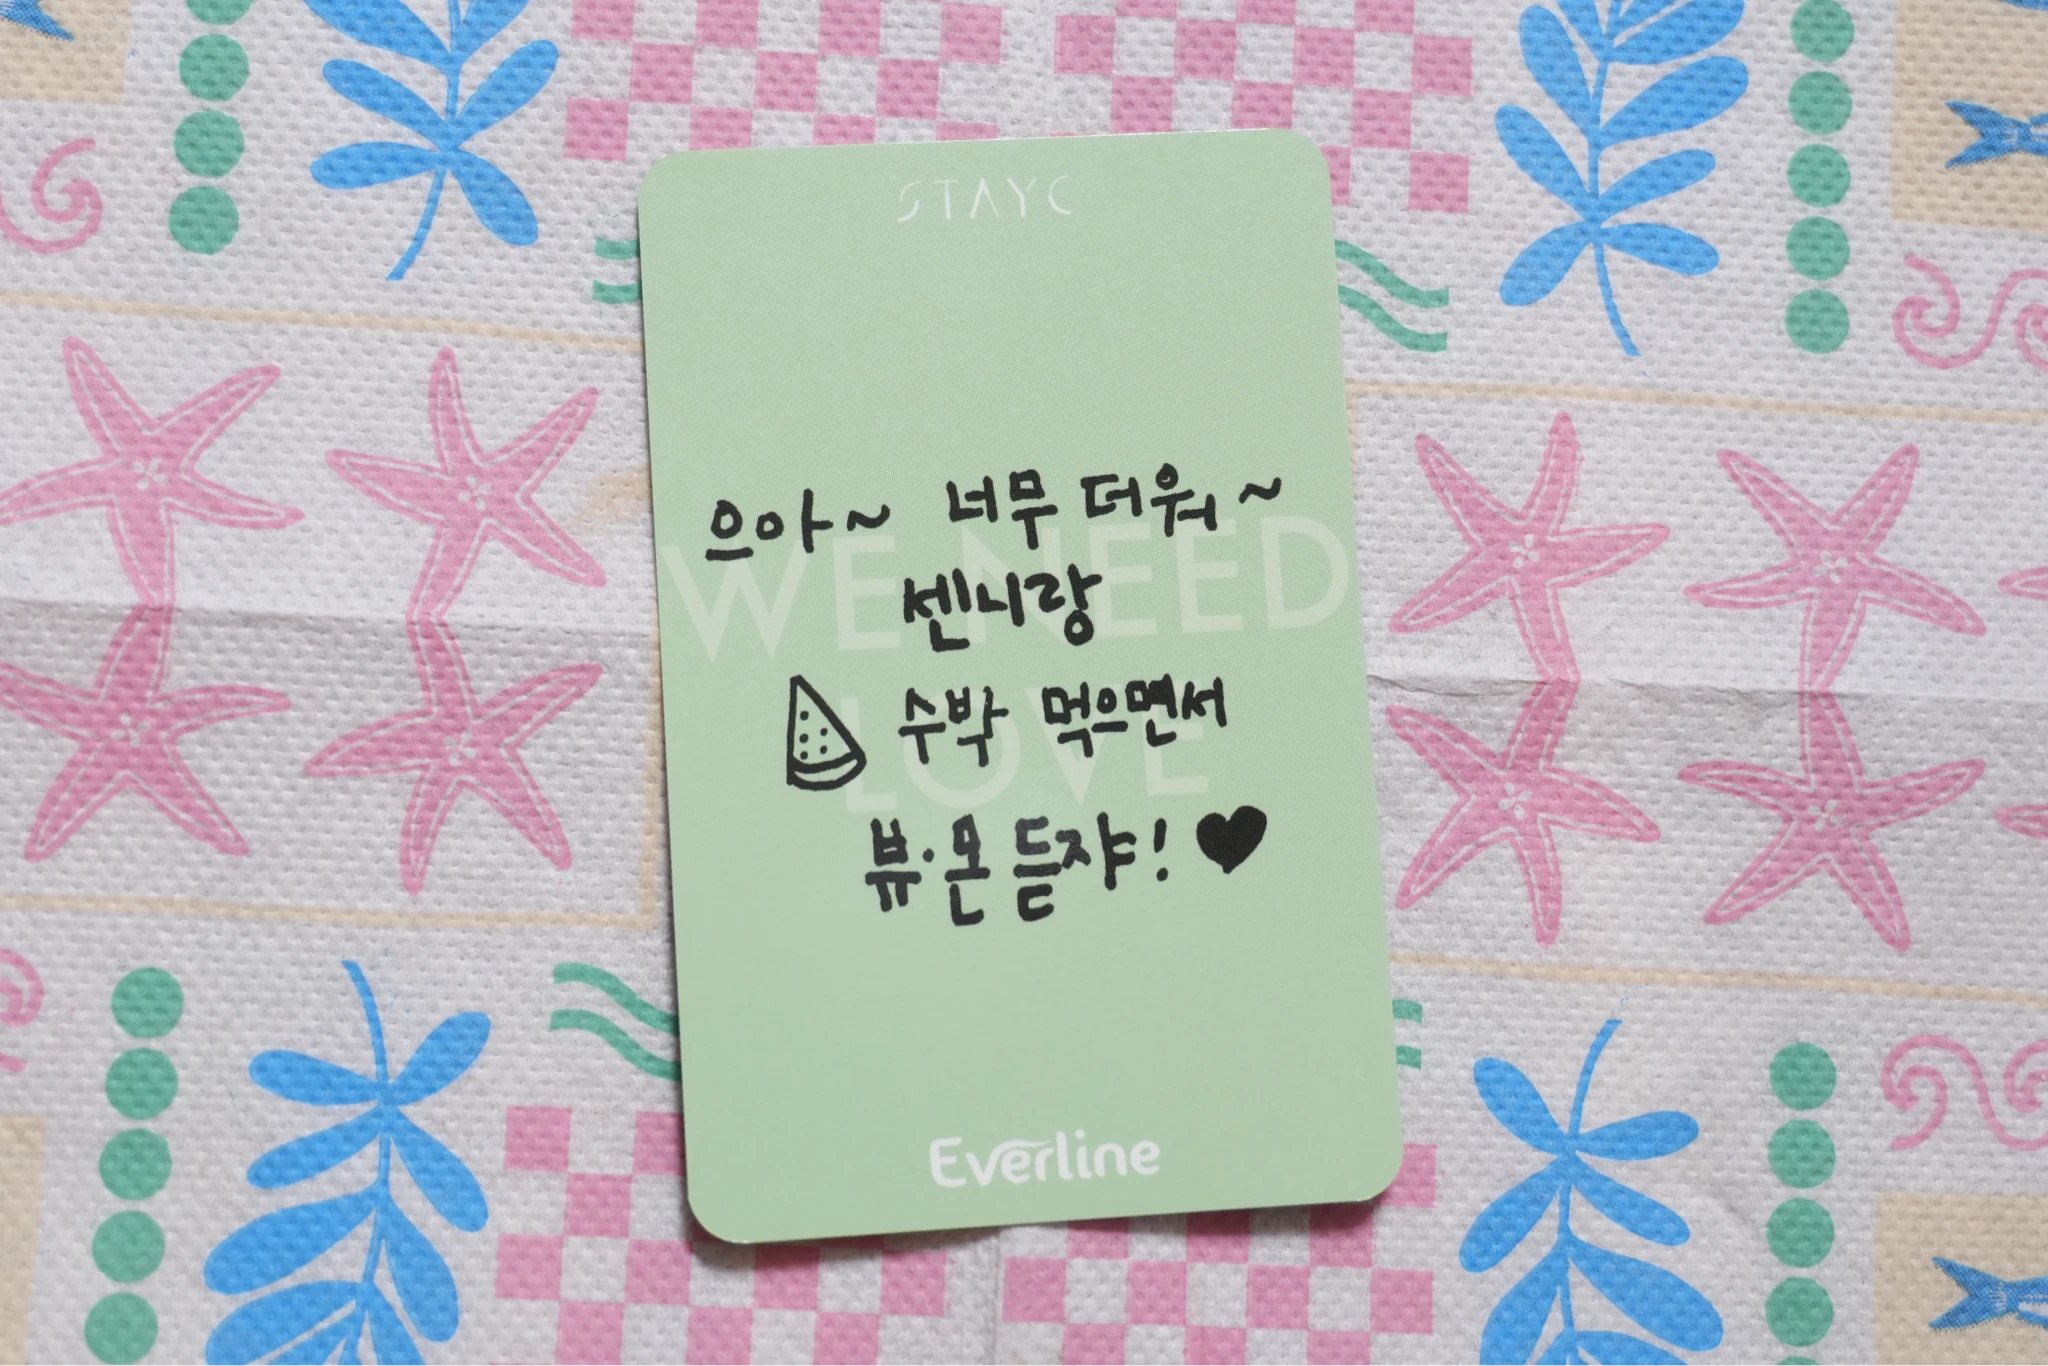 STAYC
으아~ 너무 더워~
WE NEED
센니랑
수박 먹으면서
LOVE
뷰·몬 듣쟈! ♥
Everline